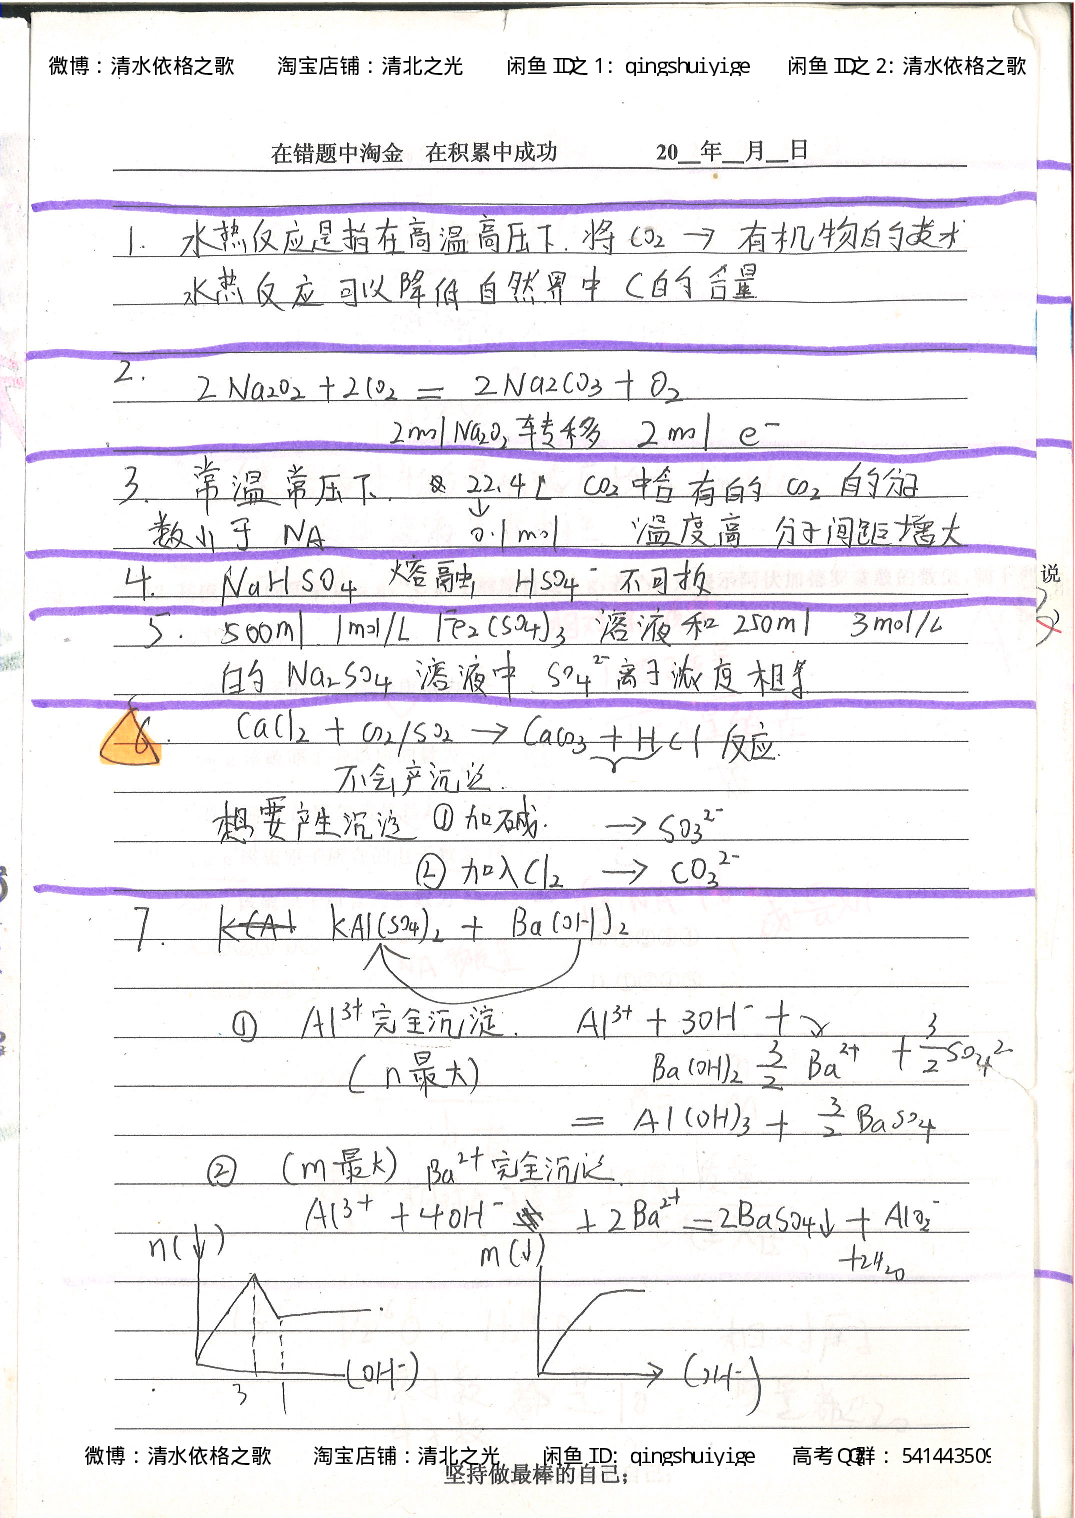 微博：清水依格之歌 淘宝店铺：清北之光 闲鱼ID之1：qingshuiyige 闲鱼ID之2：清水依格之歌
在错题中淘金 在积累中成功 20__年__月__日
1. 水热反应是指在高温高压下.将CO₂→有机物的技术
水热反应可以降低自然界中C的含量
2. 2Na₂O₂+2CO₂=2Na₂CO₃+O₂
2mol Na₂O₂转移 2mol e⁻
3. 常温常压下. 22.4L CO₂中含有的CO₂的分子
数小于NA ↓0.1mol 温度高 分子间距增大
4. NaHSO₄ 熔融 HSO₄⁻不可拆
说
5. 500ml 1mol/L Fe₂(SO₄)₃溶液和250ml 3mol/L
的Na₂SO₄溶液中 SO₄²⁻离子浓度相等
6. CaCl₂+CO₂/SO₂→CaCO₃+HCl反应.
不会产沉淀.
想要产生沉淀 ①加碱. →SO₃²⁻
②加入Cl₂ →CO₃²⁻
7. KAl(SO₄)₂+Ba(OH)₂
① Al³⁺完全沉淀. Al³⁺+3OH⁻+
(n最大) Ba(OH)₂ 3/2 Ba²⁺ +3/2SO₄²⁻
=Al(OH)₃+3/2BaSO₄
② (m最大) Ba²⁺完全沉淀.
Al³⁺+4OH⁻+2Ba²⁺=2BaSO₄↓+AlO₂⁻
+2H₂O
n(↓) m(↓)
(OH⁻) (OH⁻)
3 1
微博：清水依格之歌 淘宝店铺：清北之光 闲鱼ID：qingshuiyige 高考QQ群：541443509
坚持做最棒的自己；